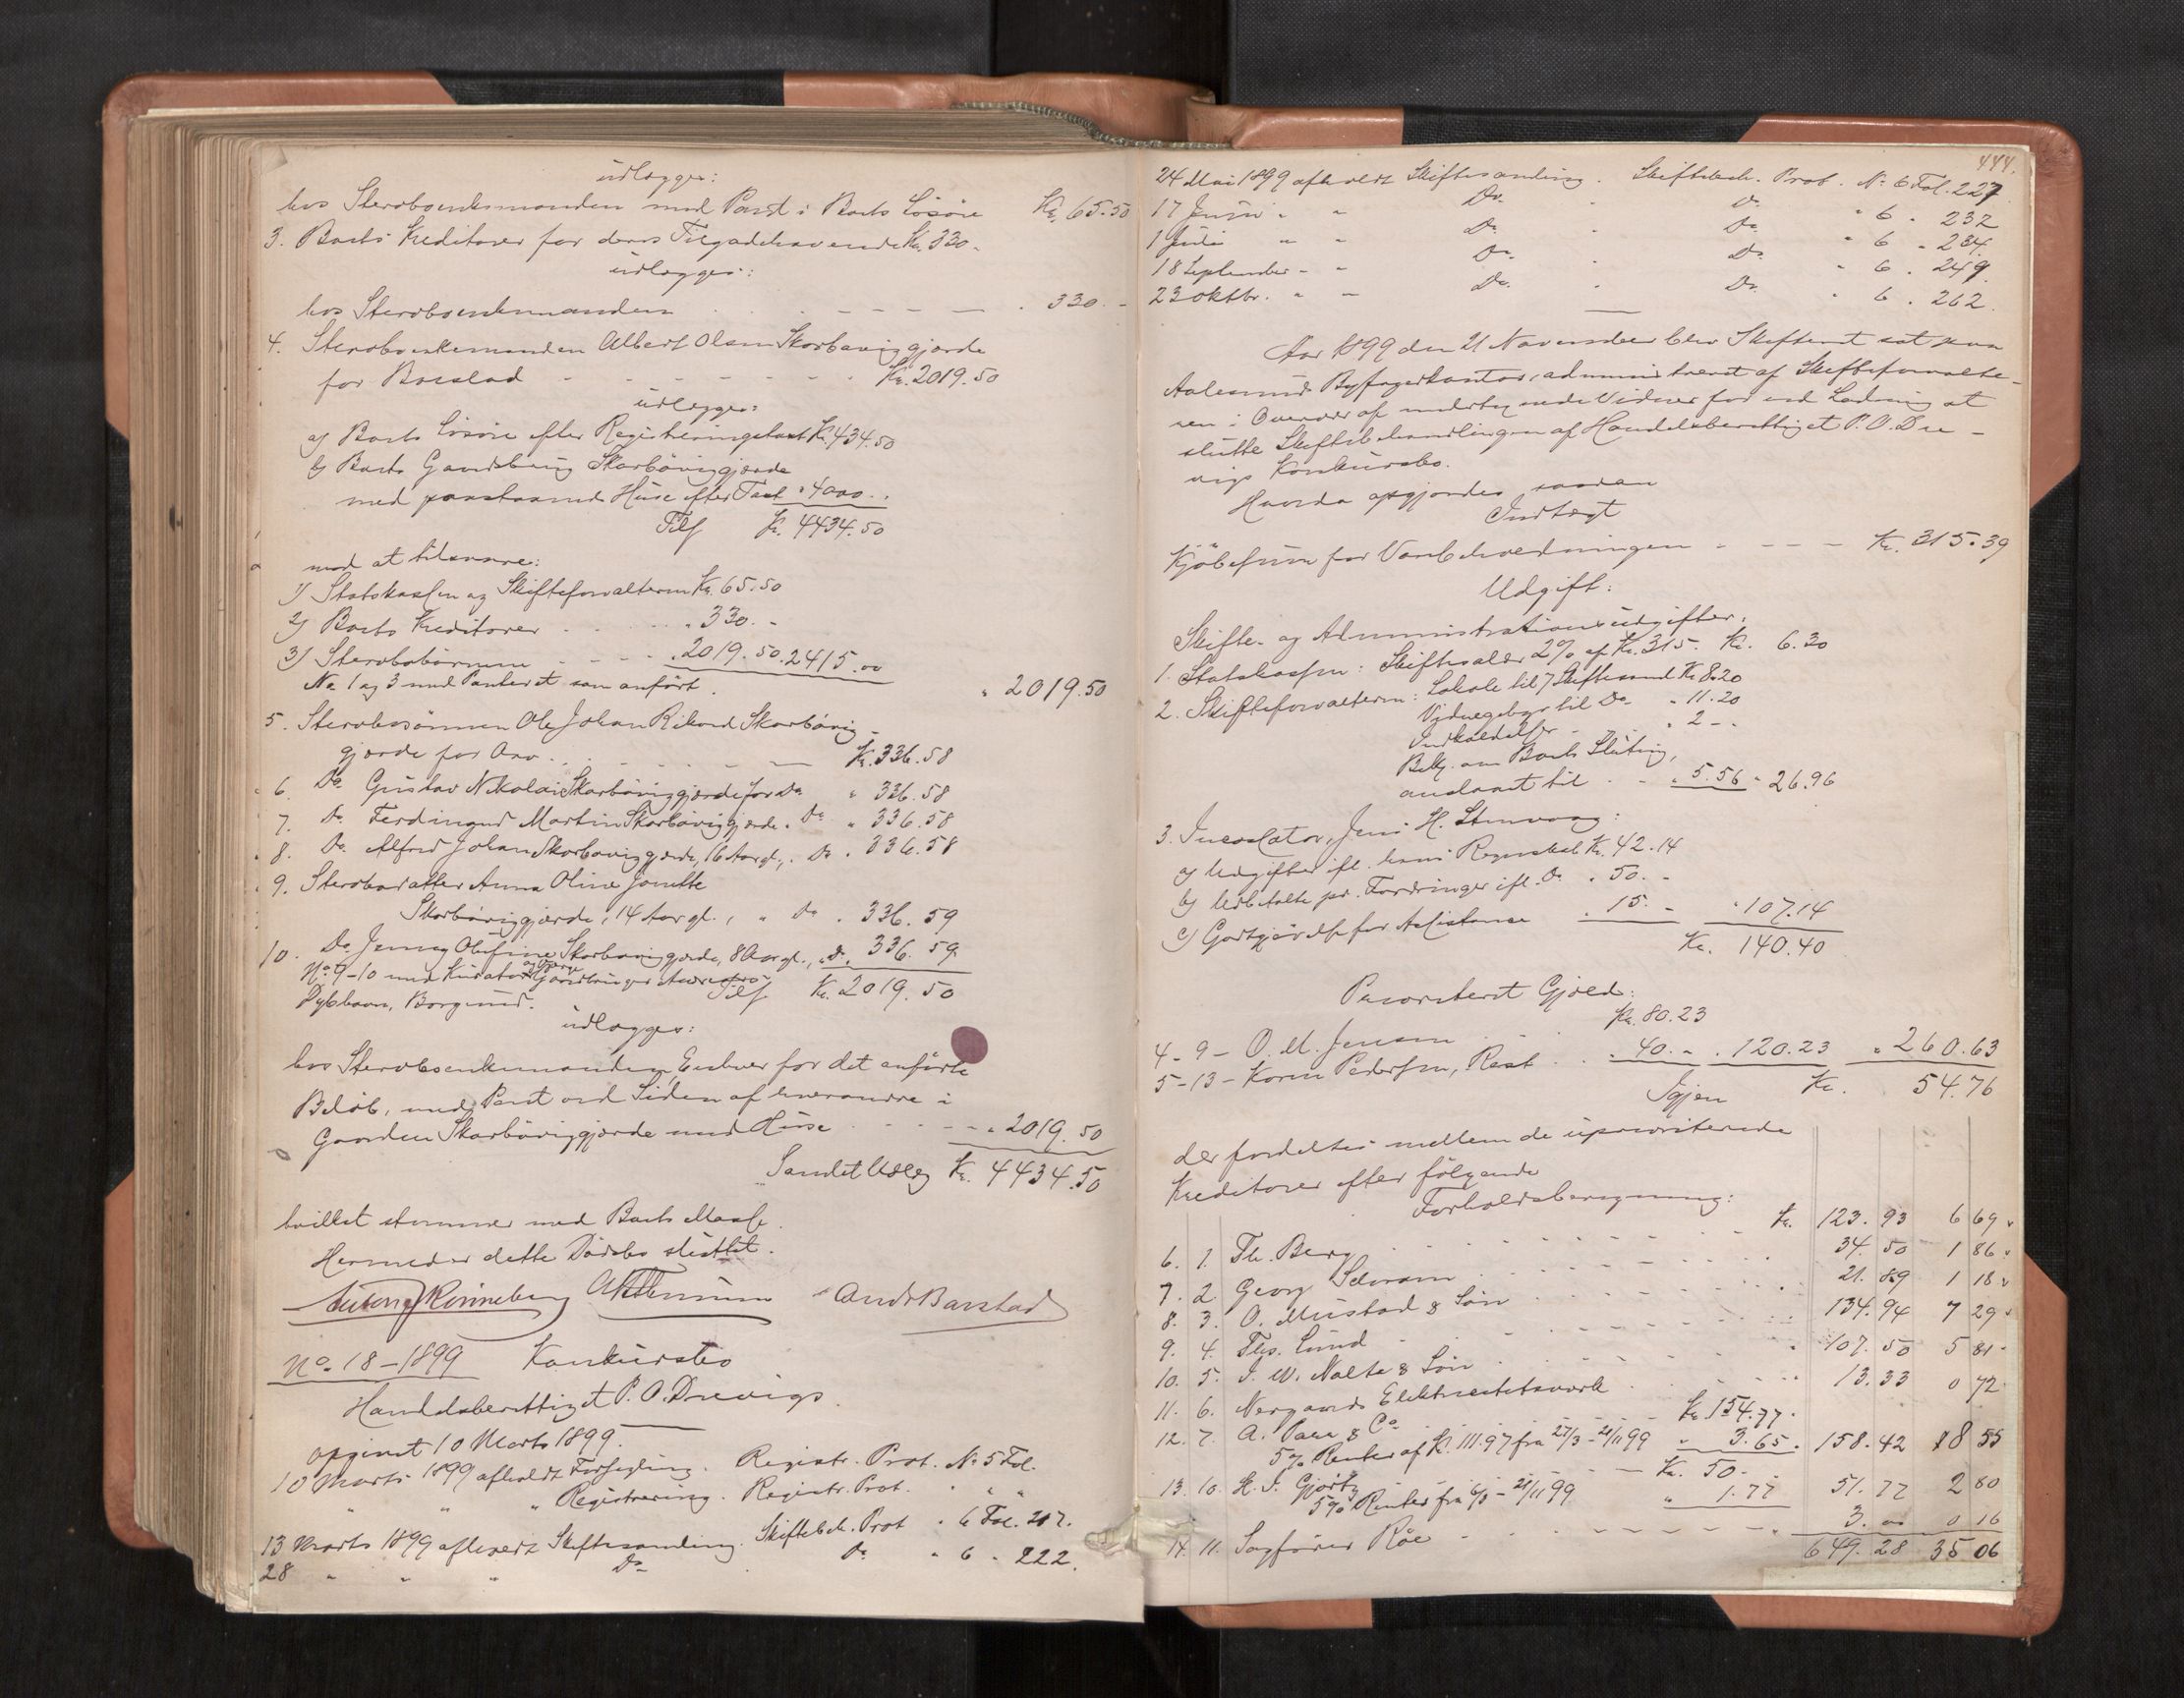 udlægges:
hos Sterboenkemanden med Pant i Boets Løsøre Kr. 65.50
3. Boets Kreditorer for deres Tilgodehavende Kr. 330.-
udlægges:
hos Sterboenkemanden " 330.-
4. Sterboenkemanden Albert Olsen Skarbøviggjærde
for Boeslod Kr. 2019.50
udlægges:
a) Boets Løsøre efter Registreringstaxt Kr. 434.50
b) Boets Gaardsbrug Skarbøviggjærde
med paastaaende Huse efter Taxt " 4000..
Tils Kr. 4434.50
mod at tilsvare:
1) Statskassen og Skifteforvalteren Kr. 65.50
2) Boets Kreditorer " 330.-
3) Sterbobørnene " 2019.50 " 2415.00
No 1 og 3 med Panteret som anført. " 2019.50
5. Sterbosønnen Ole Johan Rikard Skarbøvig-
gjærde for Arv Kr. 336.58
6. Do Gustav Nikolai Skarbøviggjærde for Do " 336.58
7. Do Ferdinand Martin Skarbøviggjærde " Do " 336.58
8. Do Alfred Johan Skarbøviggjærde, 16 Aar gl., " Do " 336.58
9. Sterbodatter Anna Oline Jonette
Skarbøviggjærde, 14 Aar gl., " Do " 336.59
10. Do Jenny Olufine Skarbøviggjærde, 8 Aar gl., " Do " 336.59
No 7-10 med Kurator og Værge Gaardbruger
Tils Kr. 2019.50
Borgund.
udlægges:
hos Sterboenkemanden, Enhver for det anførte
Beløb, med Pant ved Siden af hverandre i
Gaarden Skarbøviggjærde med Huse " 2019.50
Samlet Udlæg Kr. 4434.50
hvilket stemmer med Boets Masse.
Hermed er dette Dødsbo sluttet.
Rønneberg And. Barstad
No. 18-1899 Konkursbo
Handelsberettiget P. O. Drevigs
begyndt 10 Marts 1899.
10 Marts 1899 afholdt Forsegling. Registr. Prot. No 5 Fol.
" " " Registrering. Registr. Prot. " "
13 Marts 1899 afholdt Skiftesamling. Skiftebeh. Prot " 6 Fol. 217.
28 " " " Do Do " 6 " 222.
444.
24 Mai 1899 afholdt Skiftesamling. Skiftebeh. Prot. No 6 Fol. 227
17 Juni " " Do " Do " 6 " 232
1 Juli " " Do " Do " 6 " 234
18 September " " Do " Do " 6 " 249
23 Oktbr. " " Do " Do " 6 " 262
Aar 1899 den 21 November blev Skifteret sat paa
Aalesunds Byfogedkontor, administreret af Skifteforvalte-
ren i Overvær af undertegnede Vidner for ved Lodning at
slutte Skiftebehandlingen af Handelsberettiget P. O. Dre-
vigs Konkursbo.
Hvorda opgjordes saadan
Indtægt
Kjøbesum for Varebeholdningen Kr. 315.39
Udgift:
Skifte- og Administrationsudgifter:
1. Statskassen: Skifteafgift 2% af Kr. 315. Kr. 6.30
2. Skifteforvalteren: Lokale til 7 Skiftesaml Kr 8.20
Vidnegebyr til Do " 11.20
Indkaldelser " 2-.
Bekj. om Boets Slutning,
anslaaet til " 5.56 " 26.96
3. Incassator, Jens H. Stenvaag:
a) Udgifter ifl. hans Regnskab Kr. 42.14
b) Udbetalte pr. Fordringer ifl. Do " 50.-
c) Godtgjørelse for Assistance " 15.- " 107.14
Kr. 140.40
Prioriteret Gjæld:
4-9- O. M. Jensen Kr. 80.23
5-13- Karen Pedersen, Rest " 40.- " 120.23 " 260.63
Igjen Kr. 54.76
der fordeltes mellem de upriviligerede
Kreditorer efter følgende
Forholdsberegning:
6. 1. Th. Berg Kr. 123.93 6 69
7. 2. Georg 34.50 1 86
8. 3. O. Mustad & Søn 21.89 1 18
9. 4. Ths. Lund 134.94 7 29
10. 5. J. W. Nalte & Søn " 107.50 5 81
11. 6. Nergaards Elektricitetsværk 13.33 0 72
12. 7. A. & Co Kr. 154.77.
5% Renter af Kr. 111.97 fra 27/3 - 21/11 99 " 3.65. 158.42 8 55
13. 10. H. J. Gjørtz Kr. 50.-
5% Renter fra - 21/11 99 " 1.77 51.77 2 80
14. 11. Sagfører Røe 3.00 0 16
649.28 35 06